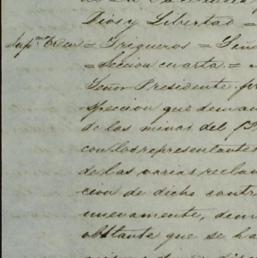 Dios y Libertad =
Sup.ᵐᵃ Orden = Trigueros = Señ
= Seccion cuarta =
Señor Presidente
speccion que deman
de las minas del
con los representantes
de las varias reclam
cion de dicho contr
nuevamente, dem
obstante que se ha